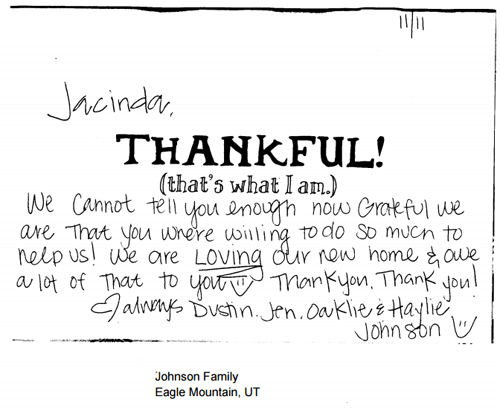 11/11
Jacinda,
THANKFUL!
(that's what I am.)
We Cannot tell you enough how Grateful we
are That you where willing to do so much to
help us! We are LOVING our new home & owe
a lot of That to you Thank you, Thank you!
always Dustin, Jen, Oaklie & Haylie
Johnson
Johnson Family
Eagle Mountain, UT